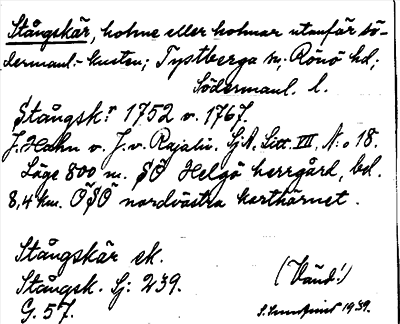 Stångskär, holme eller holmar utanför Sö-
dermanl.- kusten; Tystberga sn, Rönö hd;
Södermanl. l.
Stångsk.r 1752 v. 1767.
J. Hahn v. J. v. Rajalin. Sj.A. Litt. VII, N:o 18.
Läge 800 m. SÖ Helgö herrgård, bd.
8,4 km. ÖSÖ nordvästra karthörnet.
Stångskär ek.
Stångsk. Sj: 239.
G. 57.
(Vänd!)
1939.